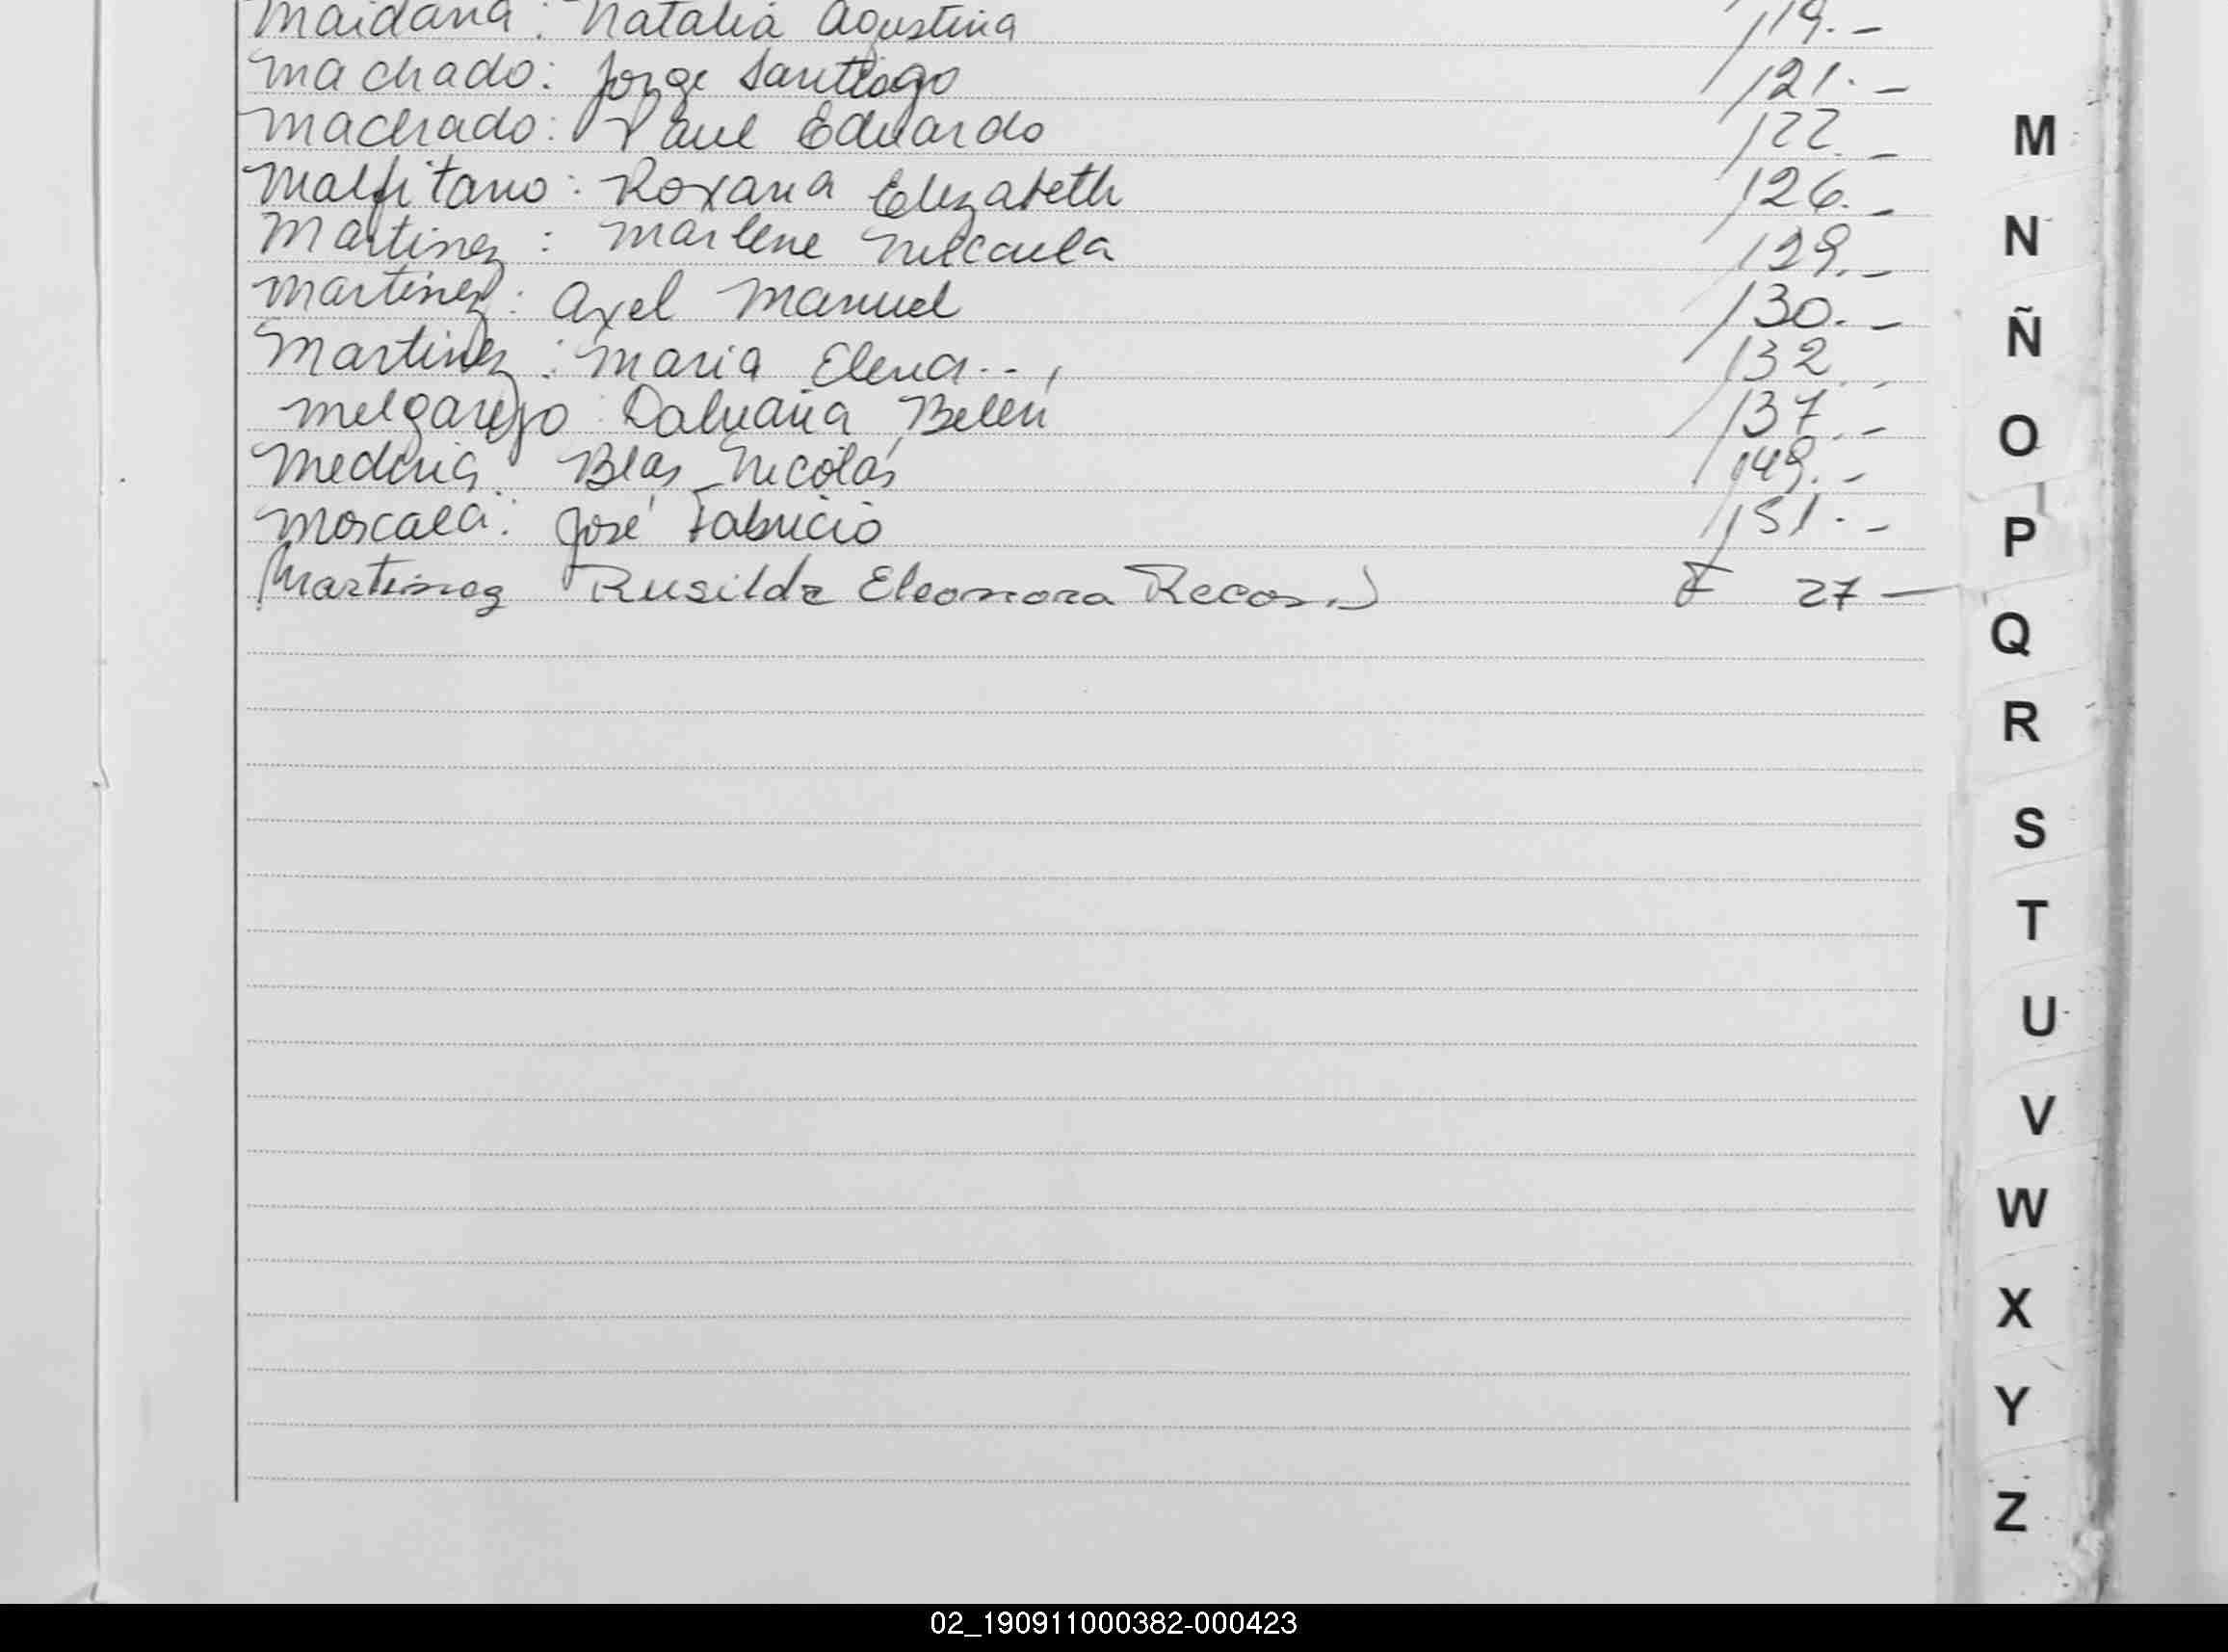 Maidana: Natalia Agustina 119.-
Machado: Jorge Santiago 121.-
Machado: Paul Eduardo 122.-
Malfitano: Roxana Elizabeth 126.-
Martinez: Marlene Micaela 129.-
Martinez: Axel Manuel 130.-
Martinez: Maria Elena 132.-
Melgarejo: Daluana Belén 137.-
Medina Blas Nicolás 149.-
Moscala: José Fabricio 151.-
Martinez Rusilda Eleonora Recon.) F 27-
M
N
Ñ
O
P
Q
R
S
T
U
V
W
X
Y
Z
02_190911000382-000423